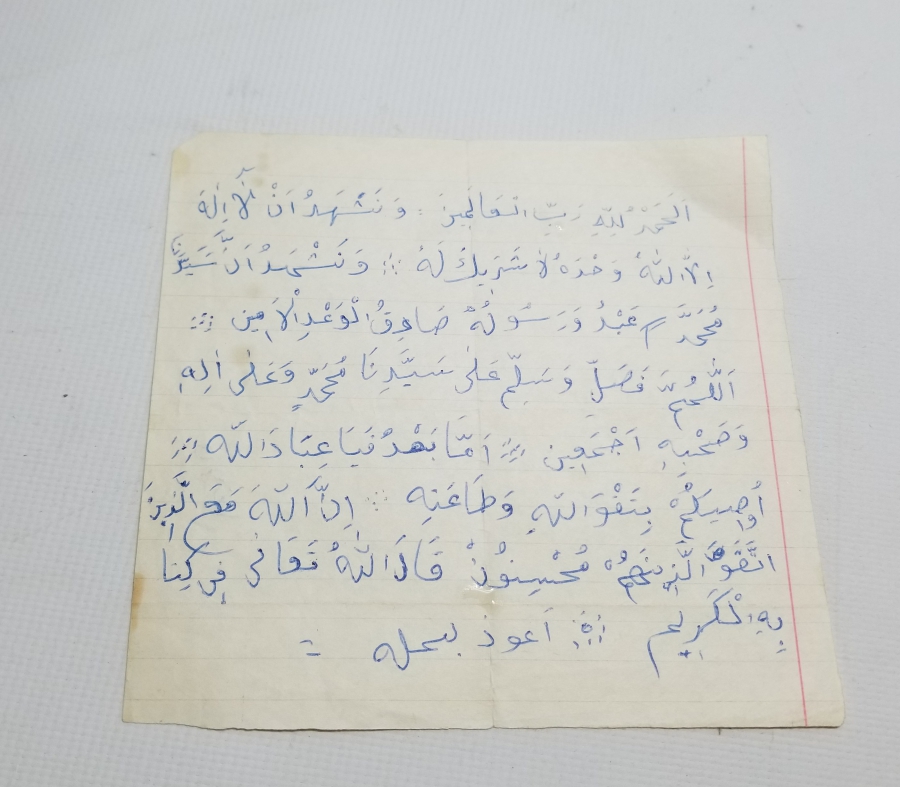 اَلْحَمْدُ لِلّٰهِ رَبِّ الْعَالَمِينَ ؞ وَنَشْهَدُ اَنْ لَآ اِلٰهَ
اِلَّا اللّٰهُ وَحْدَهُ لَا شَرِيكَ لَهُ ؞ وَنَشْهَدُ اَنَّ سَيِّدَنَا
مُحَمَّدً عَبْدُ وَرَسُولُهُ صَادِقُ الْوَعْدِ الْاَمِين ؞
اَللّٰهُمَّ فَصَلِّ وَسَلِّمْ عَلٰى سَيِّدِنَا مُحَمَّدٍ وَعَلٰى اٰلِهِ
وَصَحْبِهِ اَجْمَعِين ؞ اَمَّا بَعْدُ فَيَا عِبَادَ اللّٰه ؞
اُوصِيكُمْ بِتَقْوَ اللّٰهِ وَطَاعَتِهِ ؞ اِنَّ اللّٰهَ مَعَ الَّذِينَ
اتَّقَوْا الَّذِينَهُمْ مُحْسِنُونْ قَالَ اللّٰهُ تَعَالٰى فِي كِتَا
بِهِ الْكَرِيم ؞ اَعوذ بسمله =